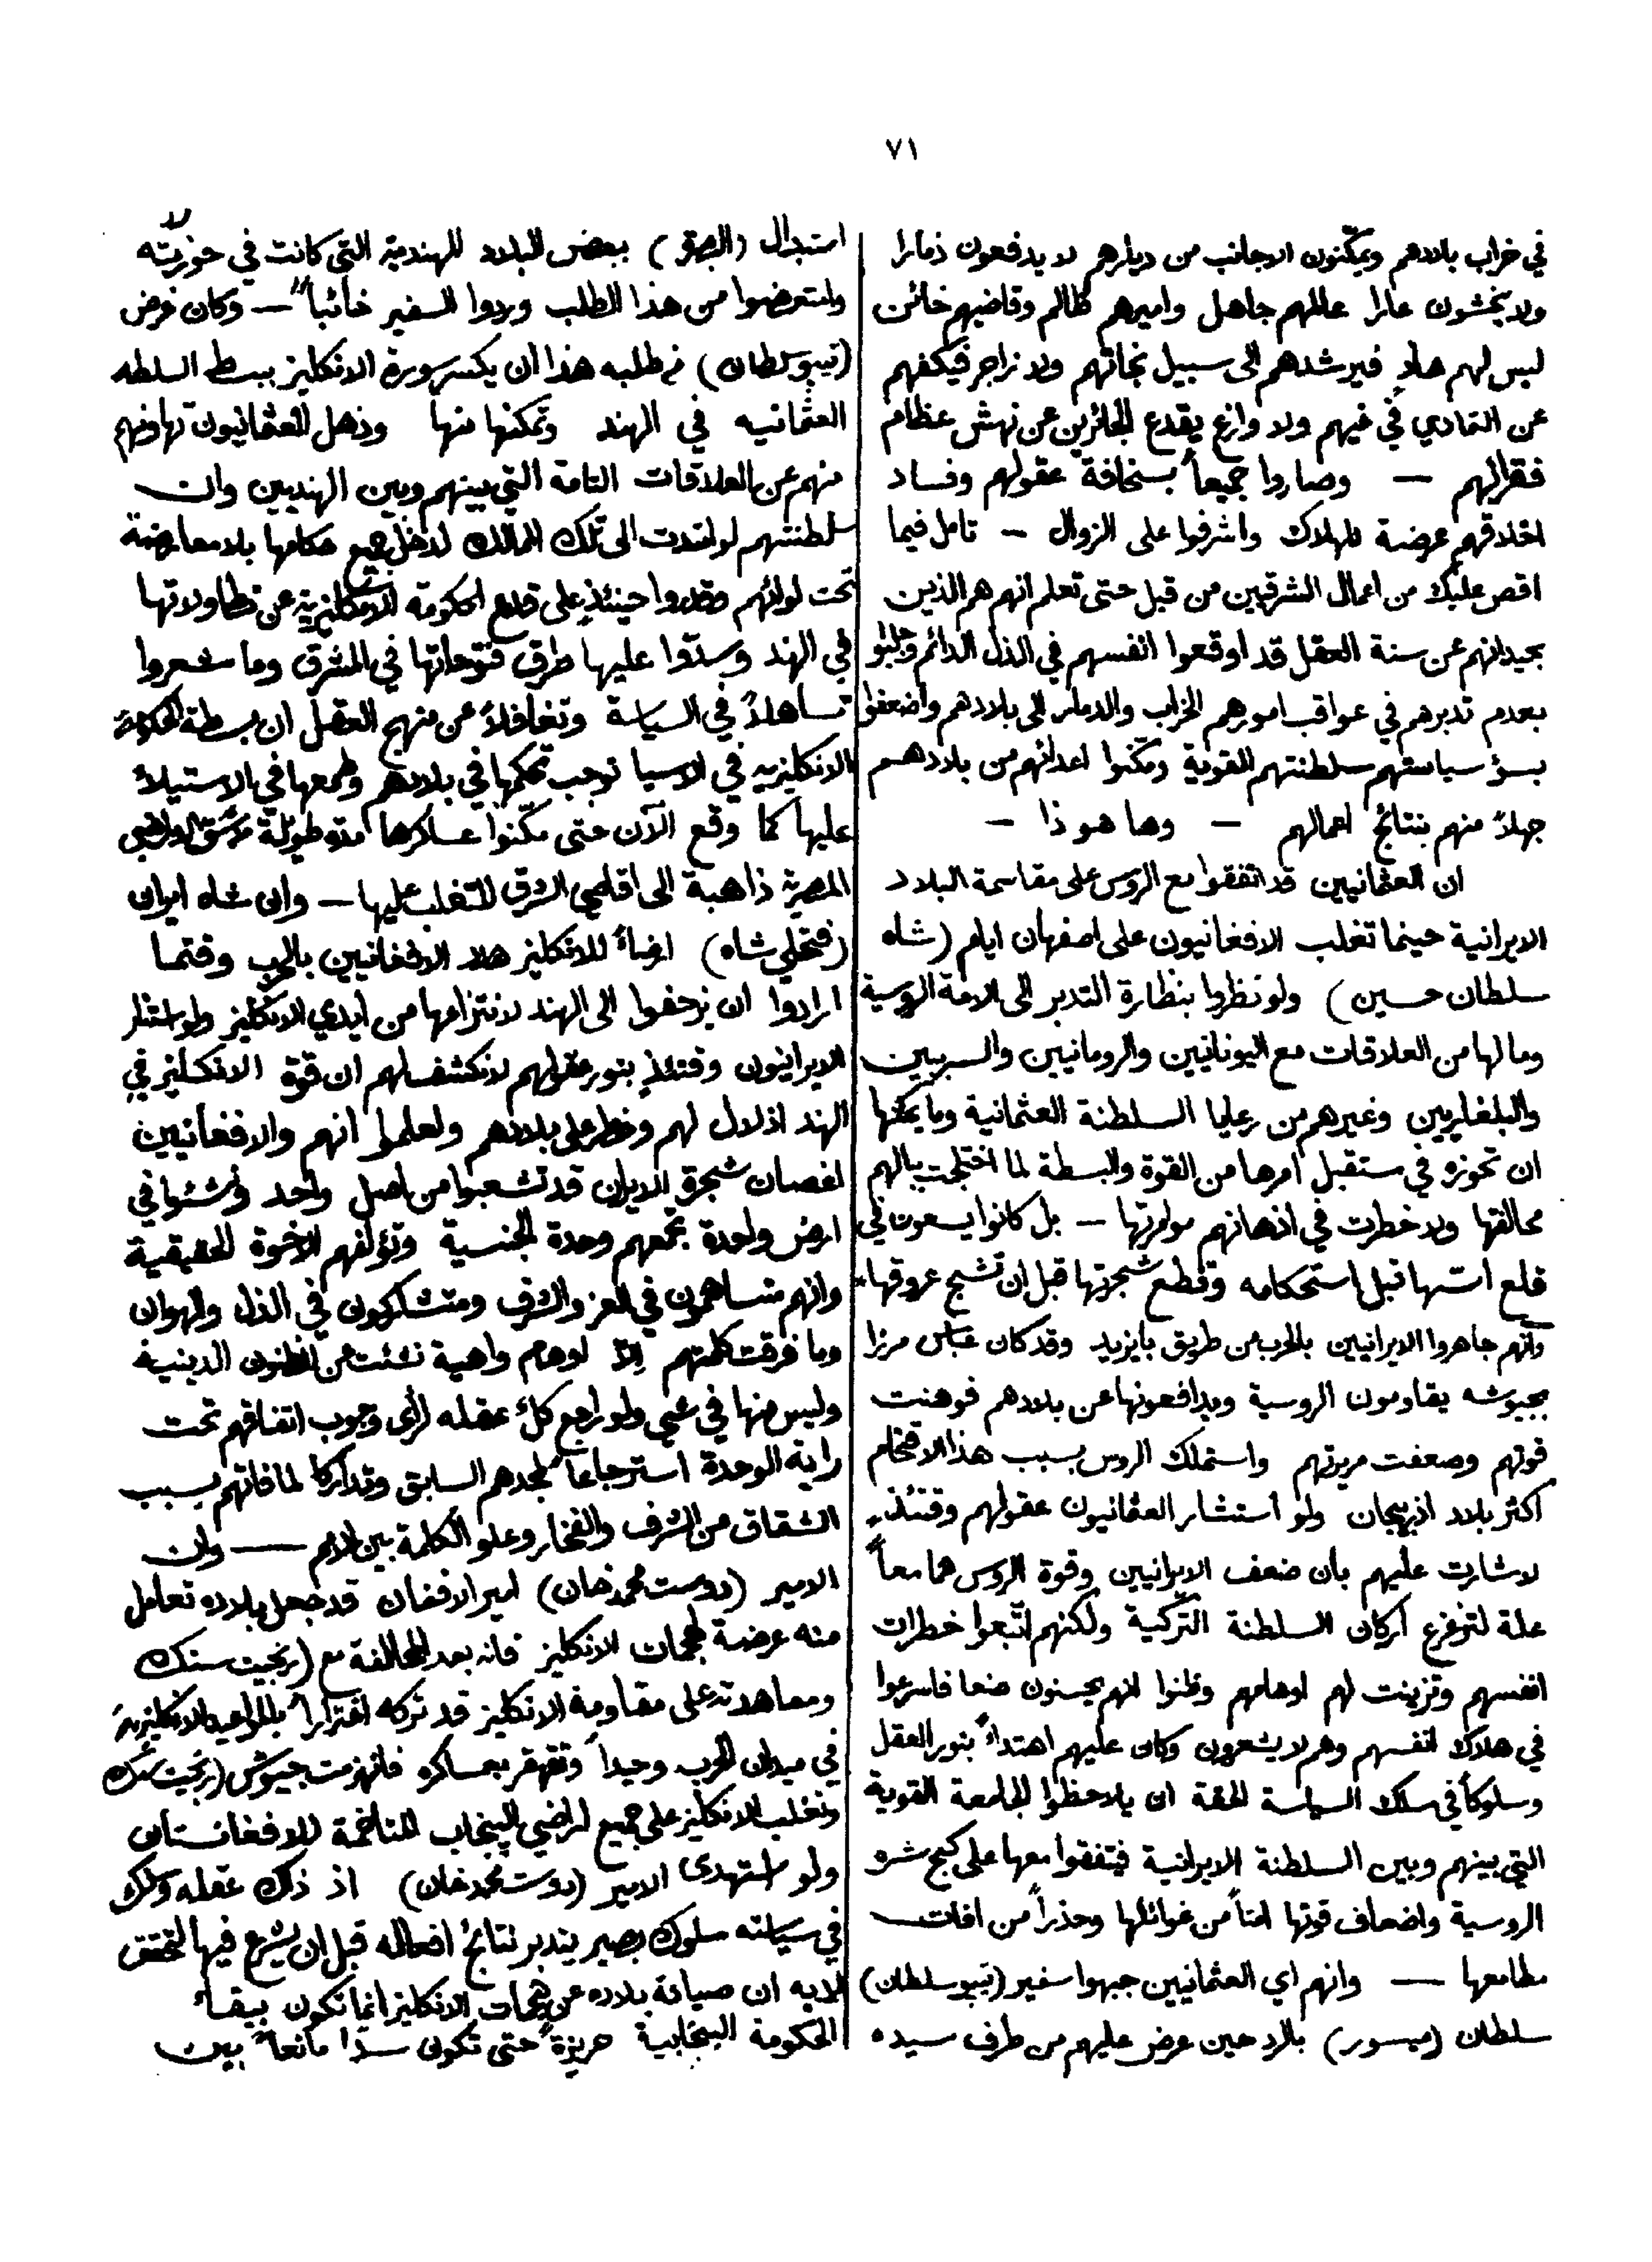 ٧١
في خراب بلادهم ويمكّنون الاجانب من ديارهم لا يدفعون ذمارا
ولا يخشون عارا عالمهم جاهل واميرهم ظالم وقاضيهم خائن
ليس لهم هادٍ فيرشدهم الى سبيل نجاتهم ولا زاجر فيكفهم
عن التمادي في غيهم ولا وازع يقدع الجائرين عن نهش عظام
فقرائهم — وصاروا جميعاً بسخافة عقولهم وفساد
اخلاقهم عرضة للهلاك واشرفوا على الزوال — تامل فيما
اقص عليك من اعمال الشرقيين من قبل حتى تعلم انهم هم الذين
بحيدانهم عن سنة العقل قد اوقعوا انفسهم في الذل الدائم وجلبوا
بعدم تدبرهم في عواقب امورهم الخراب والدمار الى بلادهم واضعفوا
بسؤ سياستهم سلطنتهم القوية ومكّنوا اعدائهم من بلادهم
جهلاً منهم بنتائج اعمالهم — وها هو ذا —
ان العثمانيين قد اتفقوا مع الروس على مقاسمة البلاد
الايرانية حينما تغلب الافغانيون على اصفهان ايام (شاه
سلطان حسين) ولو نظروا بنظارة التدبر الى الامة الروسية
وما لها من العلاقات مع اليونانيين والرومانيين والسربيين
والبلغاريين وغيرهم من رعايا السلطنة العثمانية وما يمكنها
ان تحوزه في مستقبل امرها من القوة والبسطة لما اختلجت ببالهم
محالفتها ولا خطرت في اذهانهم موازرتها — بل كانوا يسعون في
قلع اسها قبل استحكامه وقطع شجرتها قبل ان تشبج عروقها
وانهم جاهروا الايرانيين بالحرب من طريق بايزيد وقد كان عباس مرزا
بجيوشه يقاومون الروسية ويدافعونها عن بلادهم فوهنت
قوتهم وضعفت مريرتهم واستملك الروس بسبب هذا الاقتحام
اكثر بلاد اذربيجان ولو استشار العثمانيون عقولهم وقتئذٍ
لاشارت عليهم بان ضعف الايرانيين وقوة الروس هما معاً
علة لتزعزع اركان السلطنة التركية ولكنهم اتّبعوا خطرات
انفسهم وتزينت لهم اوهامهم وظنوا انهم يحسنون صنعا فاسرعوا
في هلاك انفسهم وهم لا يشعرون وكان عليهم اهتداءً بنور العقل
وسلوكاً في سلك السياسة الحقة ان يلاحظوا الجامعة القوية
التي بينهم وبين السلطنة الايرانية فيتفقوا معها على كبح شره
الروسية واضعاف قوتها امناً من غوائلها وحذراً من افات
مطامعها — وانهم اي العثمانيين جبهوا سفير (تيبو سلطان)
سلطان (ميسور) بالرد حين عرض عليهم من طرف سيده
استبدال (البصرة) ببعض البلاد الهندية التي كانت في حوزته
وامتعضوا من هذا الطلب وردوا السفير خائباً — وكان غرض
(تيبو سلطان) من طلبه هذا ان يكسر سورة الانكليز ببسط السلطه
العثمانيه في الهند وتمكنها منها وذهل العثمانيون تهاونهم
منهم عن العلاقات التامة التي بينهم وبين الهنديين وان
سلطنتهم لو امتدت الى تلك الممالك لدخل جميع حكامها بلا معارضة
تحت لوائهم وقدروا حينئذٍ على قلع الحكومة الانكليزية عن تطاولاتها
في الهند وسدّوا عليها طرق فتوحاتها في المشرق وما شعروا
تساهلاً في السياسة وتغافلاً عن منهج العقل ان بسطة الحكومة
الانكليزيه في الاسيا توجب تحكمها في بلادهم وطمعها في الاستيلاء
عليها كما وقع الآن حتى مكّنوا عساكرها مدة طويلة الاراضي
المصرية ذاهبة الى اقاصي الشرق للتغلب عليها — وان شاه ايران
(فتحلي شاه) ارضاءً للانكليز هدد الافغانيين بالحرب وقتما
ارادوا ان يزحفوا الى الهند لانتزاعها من ايدي الانكليز ولو استنار
الايرانيون وقتئذٍ بنور عقولهم لانكشف لهم ان قوة الانكليز في
الهند اذلال لهم وخطر على بلادهم ولعلموا انهم والافغانيين
اغصان شجرة الايران قد تشعبوا من اصل واحد ونشئوا في
ارض واحدة تجمعهم وحدة الجنسية وتؤلفهم الاخوة الحقيقية
وانهم متساهمون في العز والشرف ومتشاركون في الذل والهوان
وما فرقت كلمتهم الاّ اوهام واهية نشئت من الظنون الدينية
وليس منها في شي ولو راجع كلٌ عقله لرأى وجوب اتفاقهم تحت
راية الوحدة استرجاعاً لمجدهم السابق وتداركا لما فاتهم بسبب
الشقاق من الشرف والفخار وعلو الكلمة بين الامم — وان
الامير (دوست محمد خان) امير الافغان قد جعل بلاده تعامل
منه عرضة لهجمات الانكليز فانه بعد المحالفة مع (رنجيت سنك
ومعاهدته على مقاومة الانكليز قد تركه اغتراراً بالمواعيد الانكليزية
في ميدان الحرب وحيداً وتقهقر بعساكره فانهزمت جيوش (رنجيت سنك
وتغلب الانكليز على جميع اراضي البنجاب المتاخمة للافغانستان
ولو استهدى الامير (دوست محمد خان) اذ ذاك عقله وسلك
في سياسته سلوك بصير يتدبر نتائج افعاله قبل ان يشرع فيها لتحقق
لديه ان صيانة بلاده عن هجمات الانكليز انما تكون ببقاء
الحكومة البنجابية حريزة حتى تكون سدّا مانعاً بين